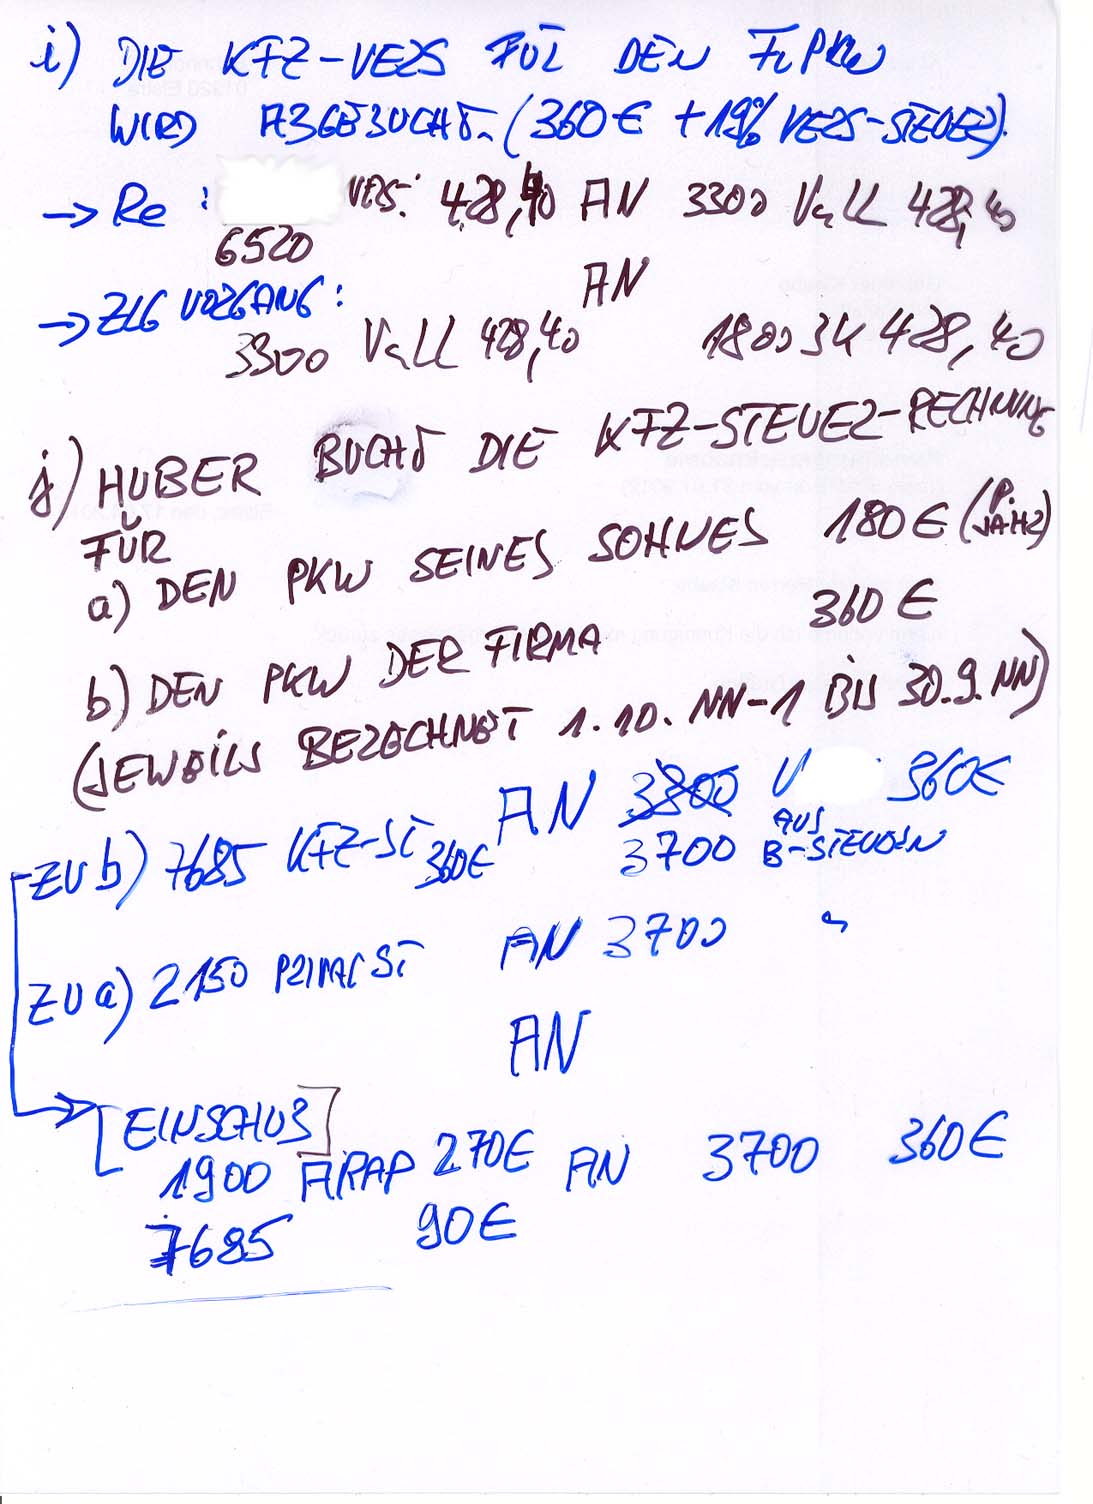 i) DIE KFZ-VERS FÜR DEN FiPKW
WIRD ABGEBUCHT. (360€ + 19% VERS-STEUER).
→ Re : VERS: 428,40 AN 3300 VaLL 428,40
6520
→ ZLG VORGANG: AN
3300 VaLL 428,40 1800 BK 428,40
j) HUBER BUCHT DIE KFZ-STEUER-RECHNUNG
FÜR
a) DEN PKW SEINES SOHNES 180€ (P. JAHR)
b) DEN PKW DER FIRMA 360€
(JEWEILS BERECHNET 1.10. NN-1 BIS 30.9. NN)
ZU b) 7685 KFZ-ST 360€ AN 3300 V 360€
3700 AUS B-STEUERN
ZU a) 2150 PRIVAT ST AN 3700 "
AN
[EINSCHUB]
1900 ARAP 270€ AN 3700 360€
7685 90€